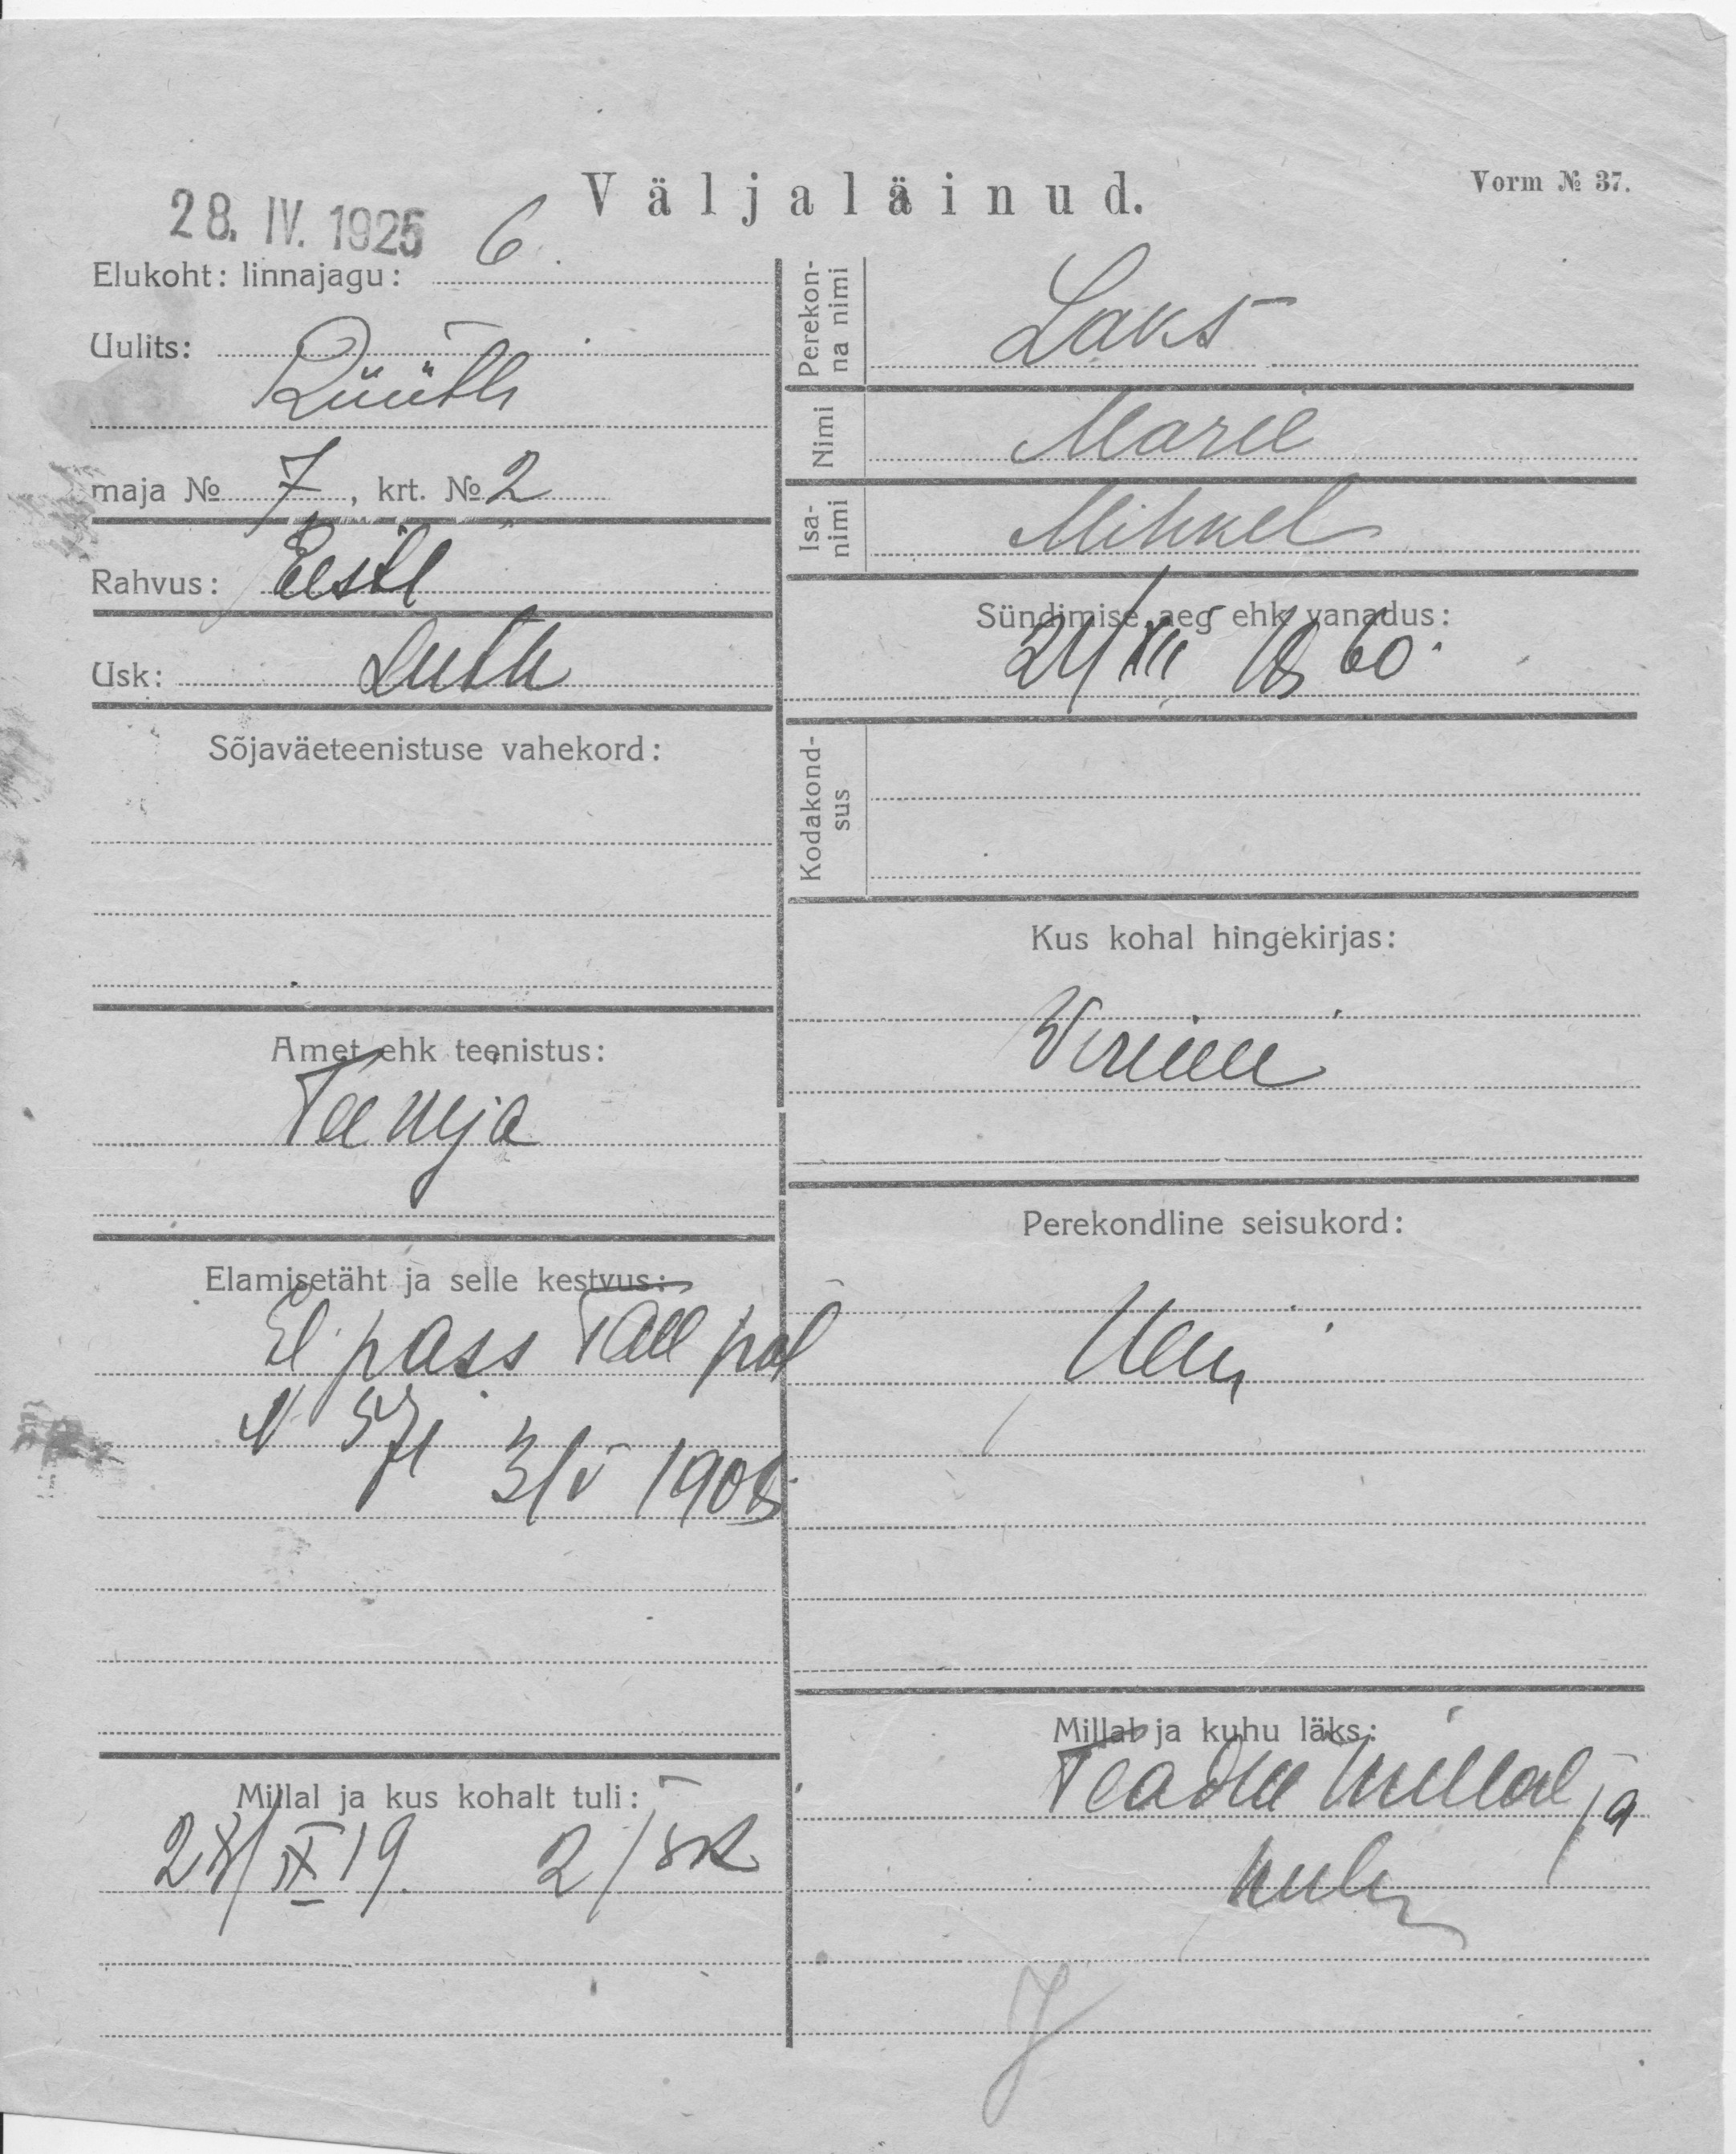 Väljaläinud.
Vorm № 37.
28. IV. 1925
Elukoht: linnajagu: 6.
Uulits:
Rüütli
maja № 7, krt. № 2
Rahvus: Eesti
Usk: Luth
Sõjaväeteenistuse vahekord:
Amet ehk teenistus:
Teenija
Elamisetäht ja selle kestvus:
El. pass Tall pol
N 571 3/V 1908
Millal ja kus kohalt tuli:
28/IX 19. 2/
Perekonna nimi
Laks
Nimi
Marie
Isanimi
Mihkel
Sündimise aeg ehk vanadus:
24/XII 1860.
Kodakondsus
Kus kohal hingekirjas:
Perekondline seisukord:
Millal ja kuhu läks:
Teadm millal ja
kuhu